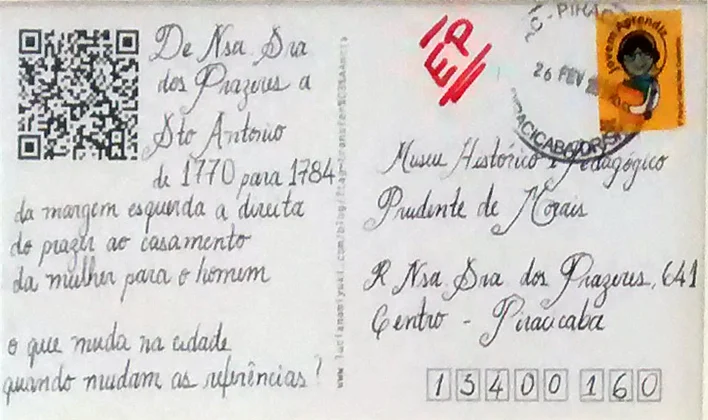 De Nsa Sra
dos Prazeres a
Sto Antonio
de 1770 para 1784
da margem esquerda a direita
do prazer ao casamento
da mulher para o homem
o que muda na cidade
quando mudam as referências?
IEP
PIRACICABA
26 FEV
Jovem Aprendiz
Museu Histórico e Pedagógico
Prudente de Morais
R Nsa Sra dos Prazeres, 641
Centro - Piracicaba
13400 160